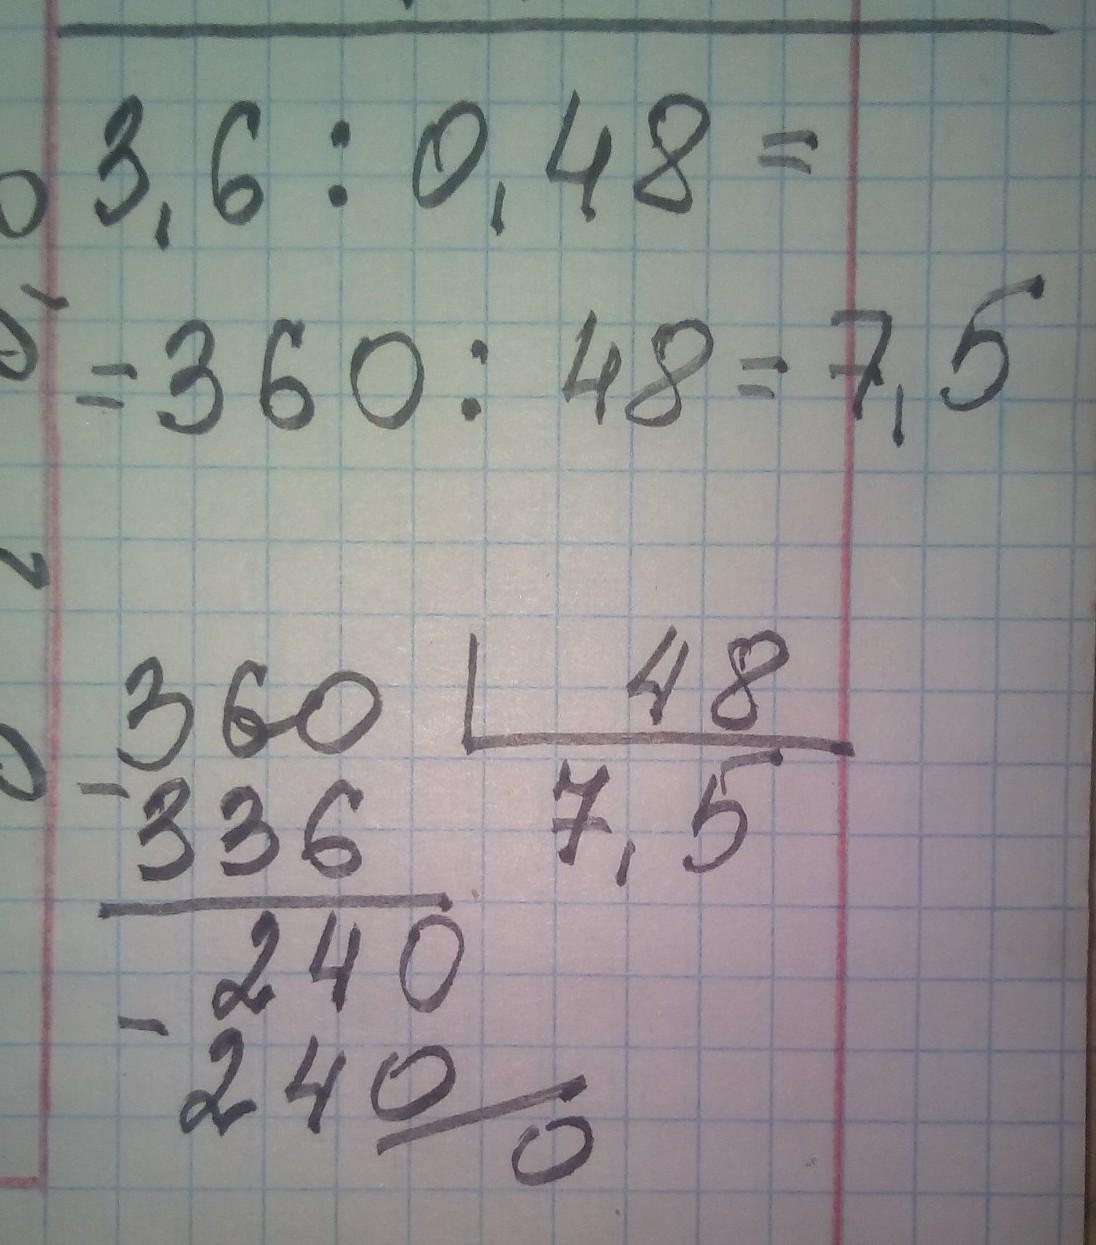 3,6 : 0,48 =
= 360 : 48 = 7,5
360 48
- 336 7,5
240
- 240
0